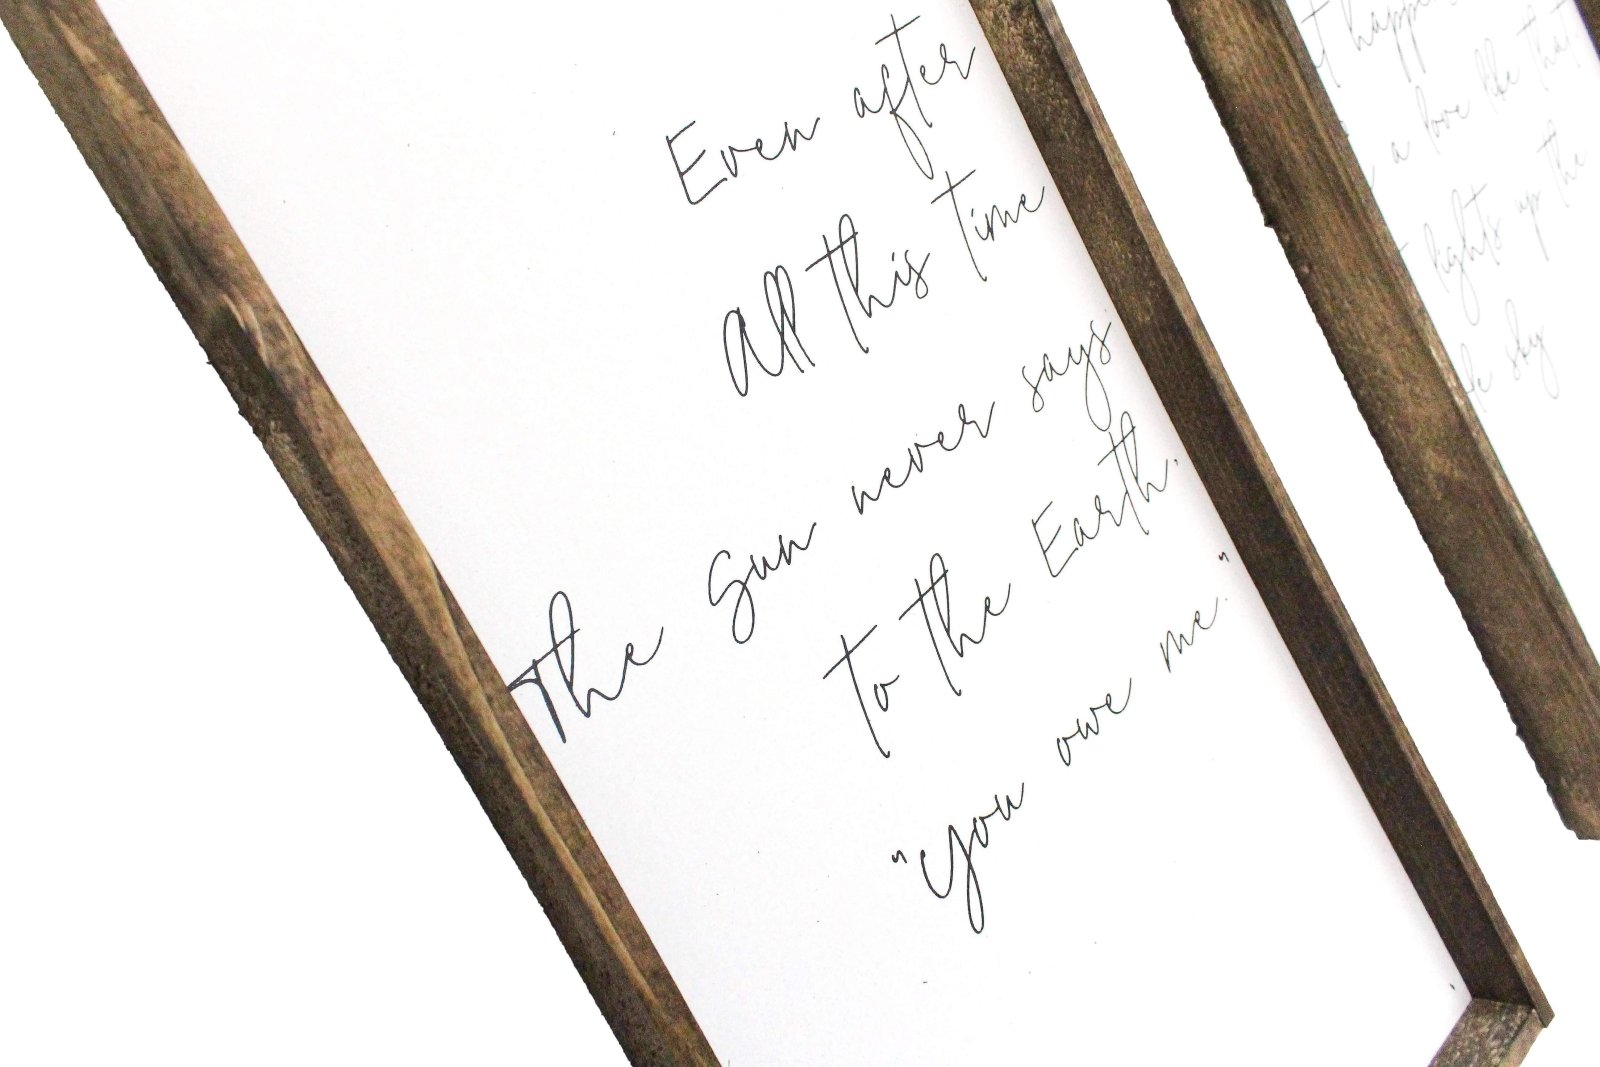 Even after
All this time
The Sun never says
to the Earth,
"you owe me."
t happen
a love like that
lights up the
sky